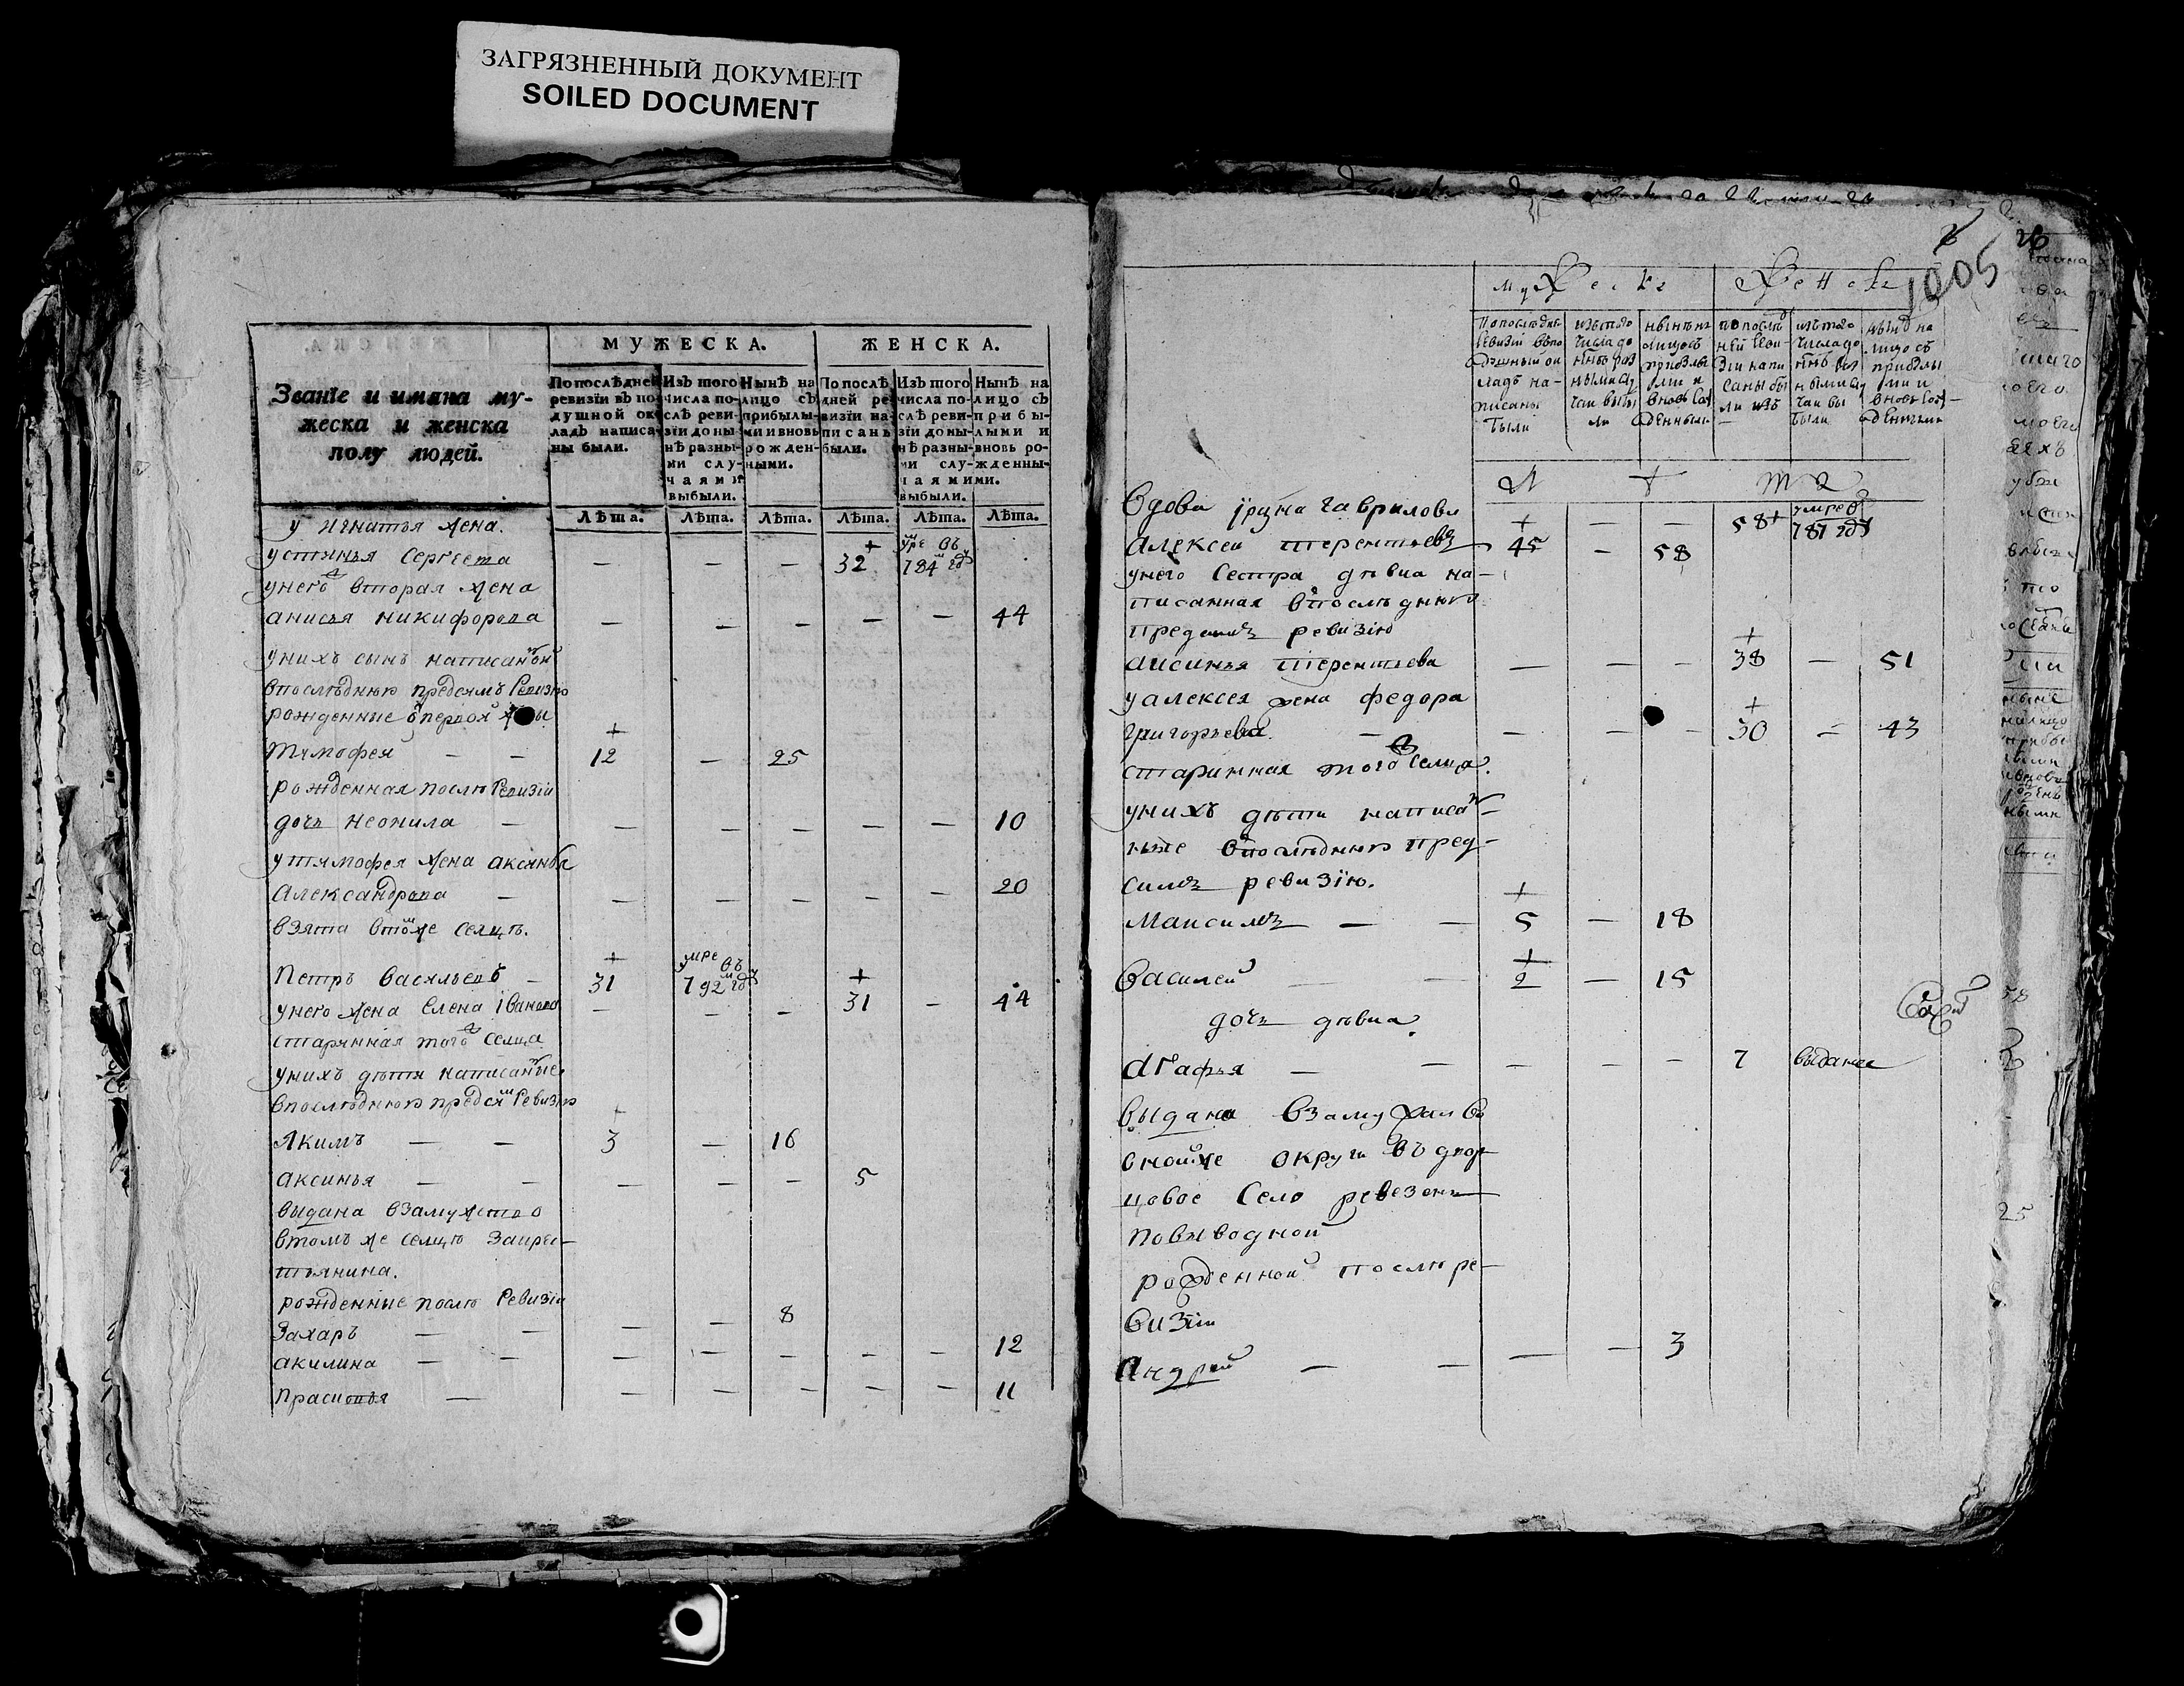 ЗАГРЯЗНЕННЫЙ ДОКУМЕНТ
SOILED DOCUMENT
Званїе и имяна му-
жеска и женска
полу людей.
МУЖЕСКА.
ЖЕНСКА.
По послѣдней
ревизїи въ по
душной ок
ладъ написа-
ны были.
Изъ того
числа по-
слѣ реви-
зїи до ны-
нѣ разны-
ми слу-
чаями
выбыли.
Нынѣ на
лицо съ
прибылы-
ми и вновь
рожден-
ными.
По послѣ
дней ре-
визїи на-
писаны
были.
Изъ того
числа по-
слѣ реви-
зїи до ны-
нѣ разны-
ми слу-
чаями
выбыли.
Нынѣ на
лицо съ
прибы-
лыми и
вновь ро-
жденны-
ми.
Лѣта. Лѣта. Лѣта. Лѣта. Лѣта. Лѣта.
у игнатья жена.
устинья Сергѣева — — — 32 умре въ 784 м году
унего вторая жена
анисья никифорова — — — — — 44
унихъ сынъ написанной
впослѣднюю предсимъ Ревизию
рожденные от первой жены
тимофей — — 12 — 25
рожденная послѣ Ревизіи
дочь неонила — — — — — — 10
у тимофея жена аксинья
Александрова — — — — — — 20
взята втомже селцѣ.
Петръ васильевъ — 31 умре въ 792 м году
унего жена Елена Иванова — — — 31 — 44
старинная того селца
унихъ дѣти написанные
впослѣднюю предсим Ревизию
Якимъ — — 3 — 16
аксинья — — — — — 5
выдана взамужство
втомъ же селцѣ закрес-
тьянина.
рожденные послѣ Ревизіи
Захаръ — — — — 8
акилина — — — — — — — 12
прасковья — — — — — — 11
1005
мужеска женска
По послѣдней
ревизіи въ по
душный ок
ладъ на-
писаны
были
изъ того
числа до
нынѣ раз
ными слу
чаи выбы
ли
нынѣ на
лицо съ
прибылы
ми и
вновь рож
денными
по послѣд
ней реви-
зіи напи
саны бы
ли
изъ того
числа до
нынѣ раз
ными слу
чаи вы
были
нынѣ на
лицо съ
прибылы
ми и
вновь рож-
денными
Л ѣ т а
Вдова ирина гаврилова — — 58 умре в 787 году
Алексей терентьевъ 45 — 58
унего Сестра дѣвка на-
писанная впослѣднюю
предсимъ ревизію
аксинья терентьева — — — 38 — 51
уалексея жена федора
григорьева. — — — — 30 — 43
старинная того селца.
унихъ дѣти написан-
ные впослѣднюю пред-
симъ ревизїю.
Максимъ — — 5 — 18
Василей — — 2 — 15
дочь дѣвка.
агафья — — — — — 7 выдана
выдана взамужство
вноиже округи въ двор-
цовое Село ревезень
повыводной
рожденной послѣ ре-
визіи
Андрей — — — — 3